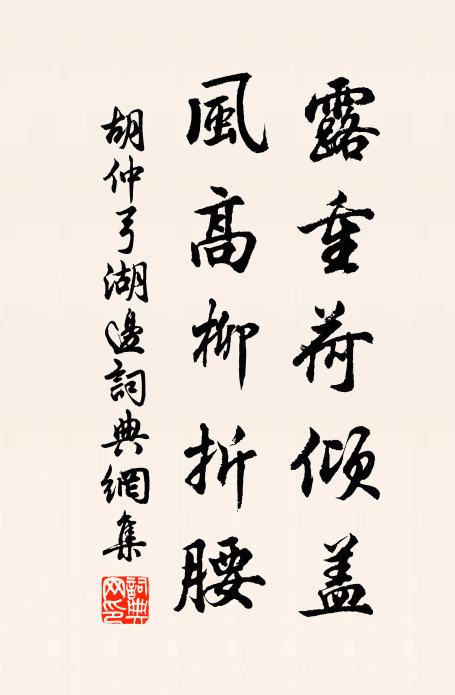 露重荷傾盖
風高柳折腰
胡仲弓湖邊詞典網集
詞典網印